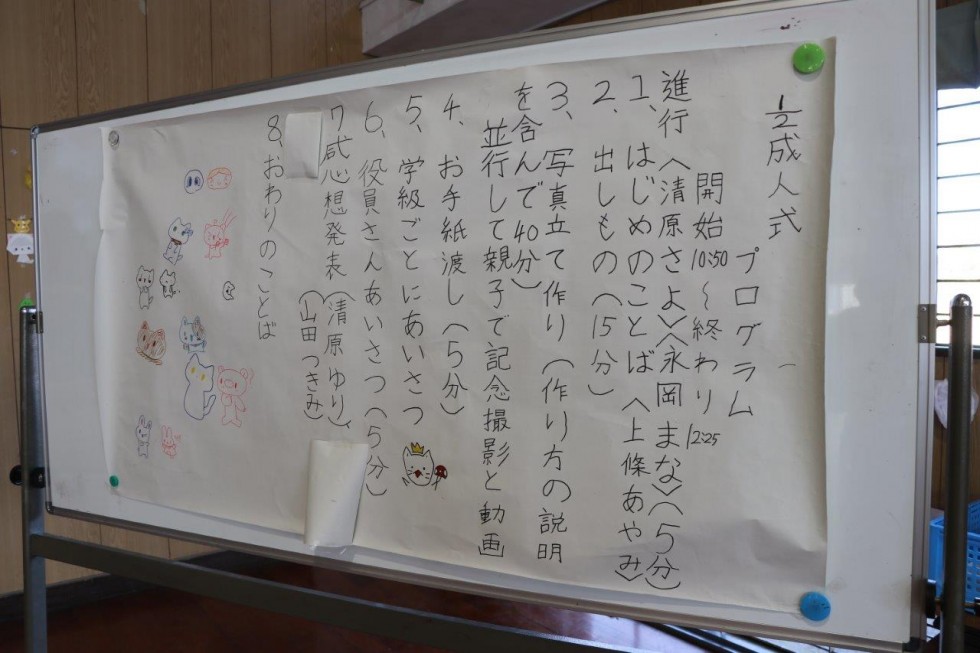 1/2成人式
プログラム
開始10:50〜終わり12:25
進行〈清原さよ〉〈永岡まな〉(5分)
1、はじめのことば〈上條あやみ〉
2、出しもの(15分)
3、写真立て作り(作り方の説明
を含んで40分)
並行して親子で記念撮影と動画
4、お手紙渡し(5分)
5、学級ごとにあいさつ
6、役員さんあいさつ(5分)
7、感想発表(清原ゆり)、
(山田つきみ)
8、おわりのことば